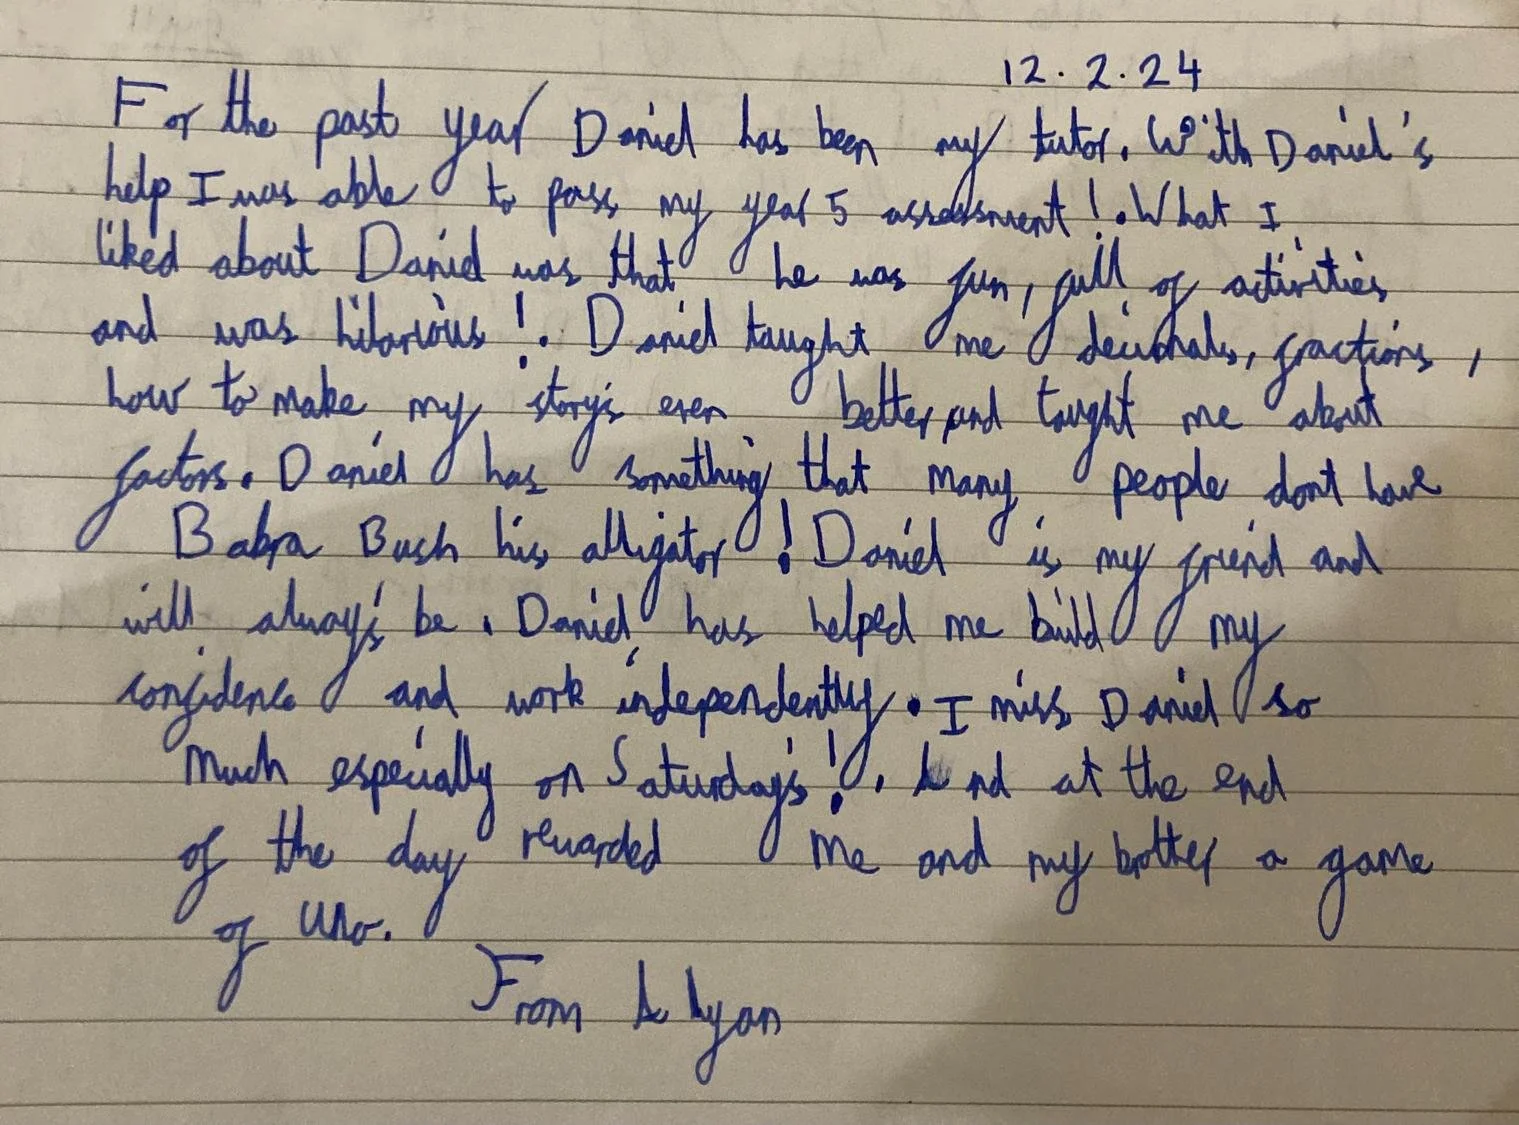 12.2.24
For the past year Daniel has been my tutor. With Daniel's
help I was able to pass my year 5 assessment!. What I
liked about Daniel was that he was fun, full of activities
and was hilarious!. Daniel taught me decimals, fractions,
how to make my story's even better and taught me about
factors. Daniel has something that many people dont have
Babra Bush his alligator! Daniel is my friend and
will always be. Daniel has helped me build my
confidence and work independently. I miss Daniel so
much especially on Saturday's!. And at the end
of the day rewarded me and my brother a game
of Uno.
From Allyan